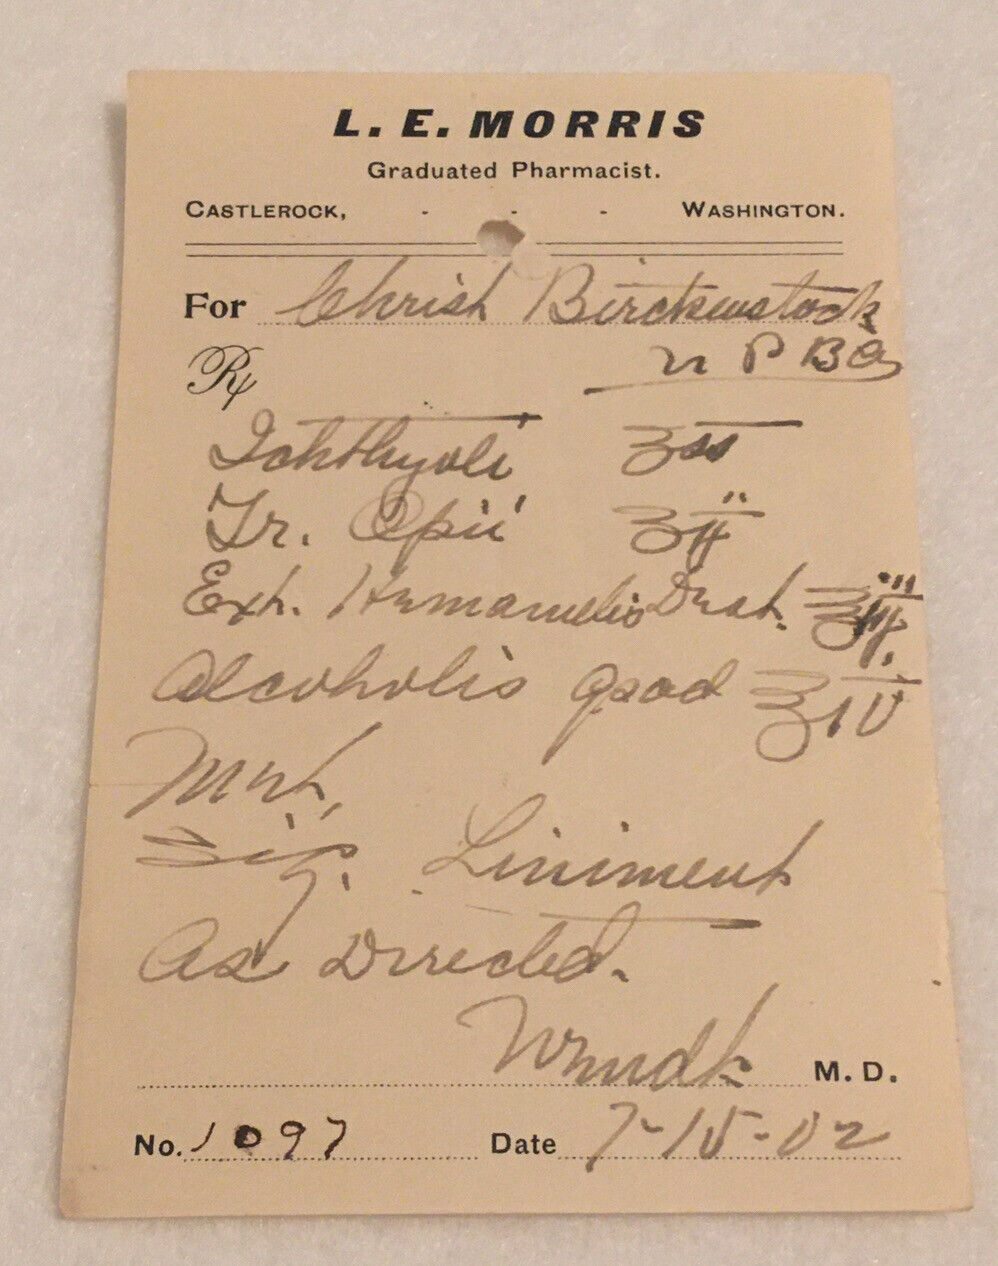 L. E. MORRIS
Graduated Pharmacist.
CASTLEROCK, - - - WASHINGTON.
For Christ Birckenstock
N P B Co
Rx
Ichthyoli ʒss
Tr. Opii ʒii
Ext. Hamamelis Dest. ℥iii
Alcoholis qsad ℥iv
Sig. Liniment
As Directed.
M. D.
No. 1097 Date 7-15-02